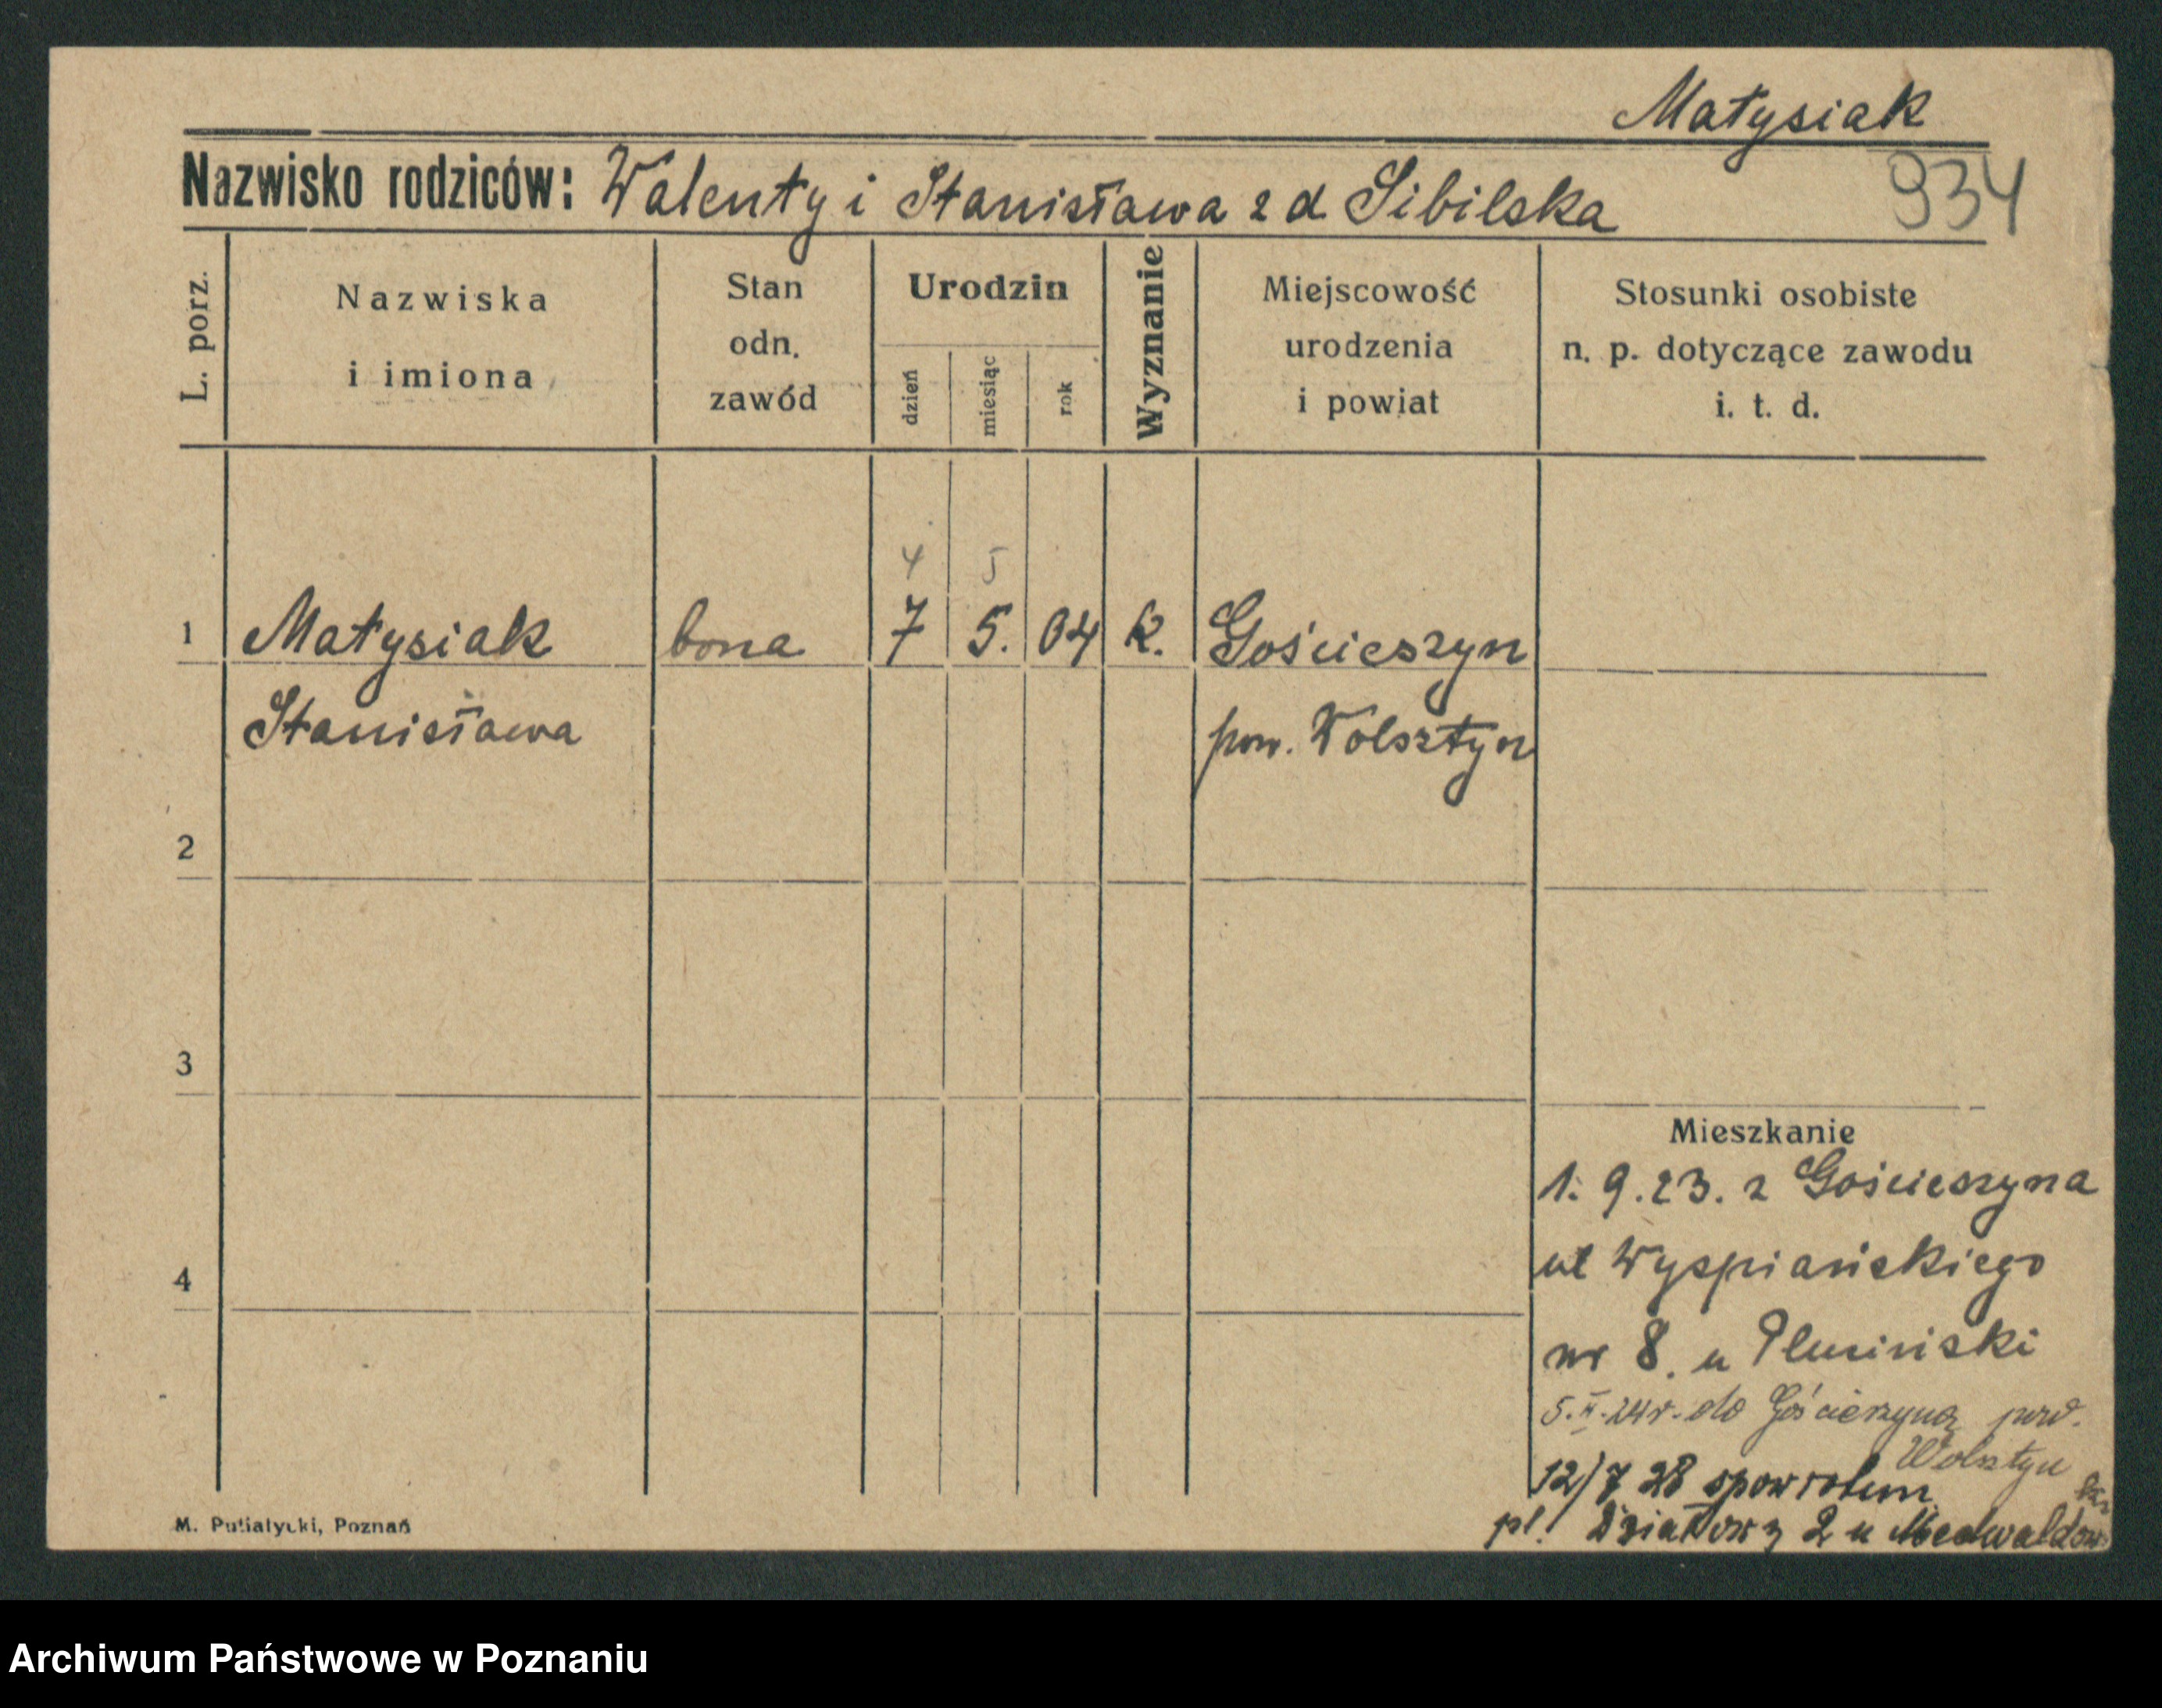 Matysiak
934
Nazwisko rodziców: Walenty i Stanisława z d Sibilska
L. porz.
Nazwiska
i imiona
Stan
odn.
zawód
Urodzin
dzień
miesiąc
rok
Wyznanie
Miejscowość
urodzenia
i powiat
Stosunki osobiste
n. p. dotyczące zawodu
i. t. d.
4 5
1 Matysiak bona 7 5. 04 k. Gościeszyn
Stanisława pow. Wolsztyn
2
3
4
Mieszkanie
1. 9. 23. z Gościeszyna
ul Wyspiańskiego
nr 8. u Plusiński
5. II. 24 r. do Gościeszyna pow.
Wolsztyn
12/7 28 spowrotem
pl. Działowy 2 u
M. Putiatycki, Poznań
Archiwum Państwowe w Poznaniu